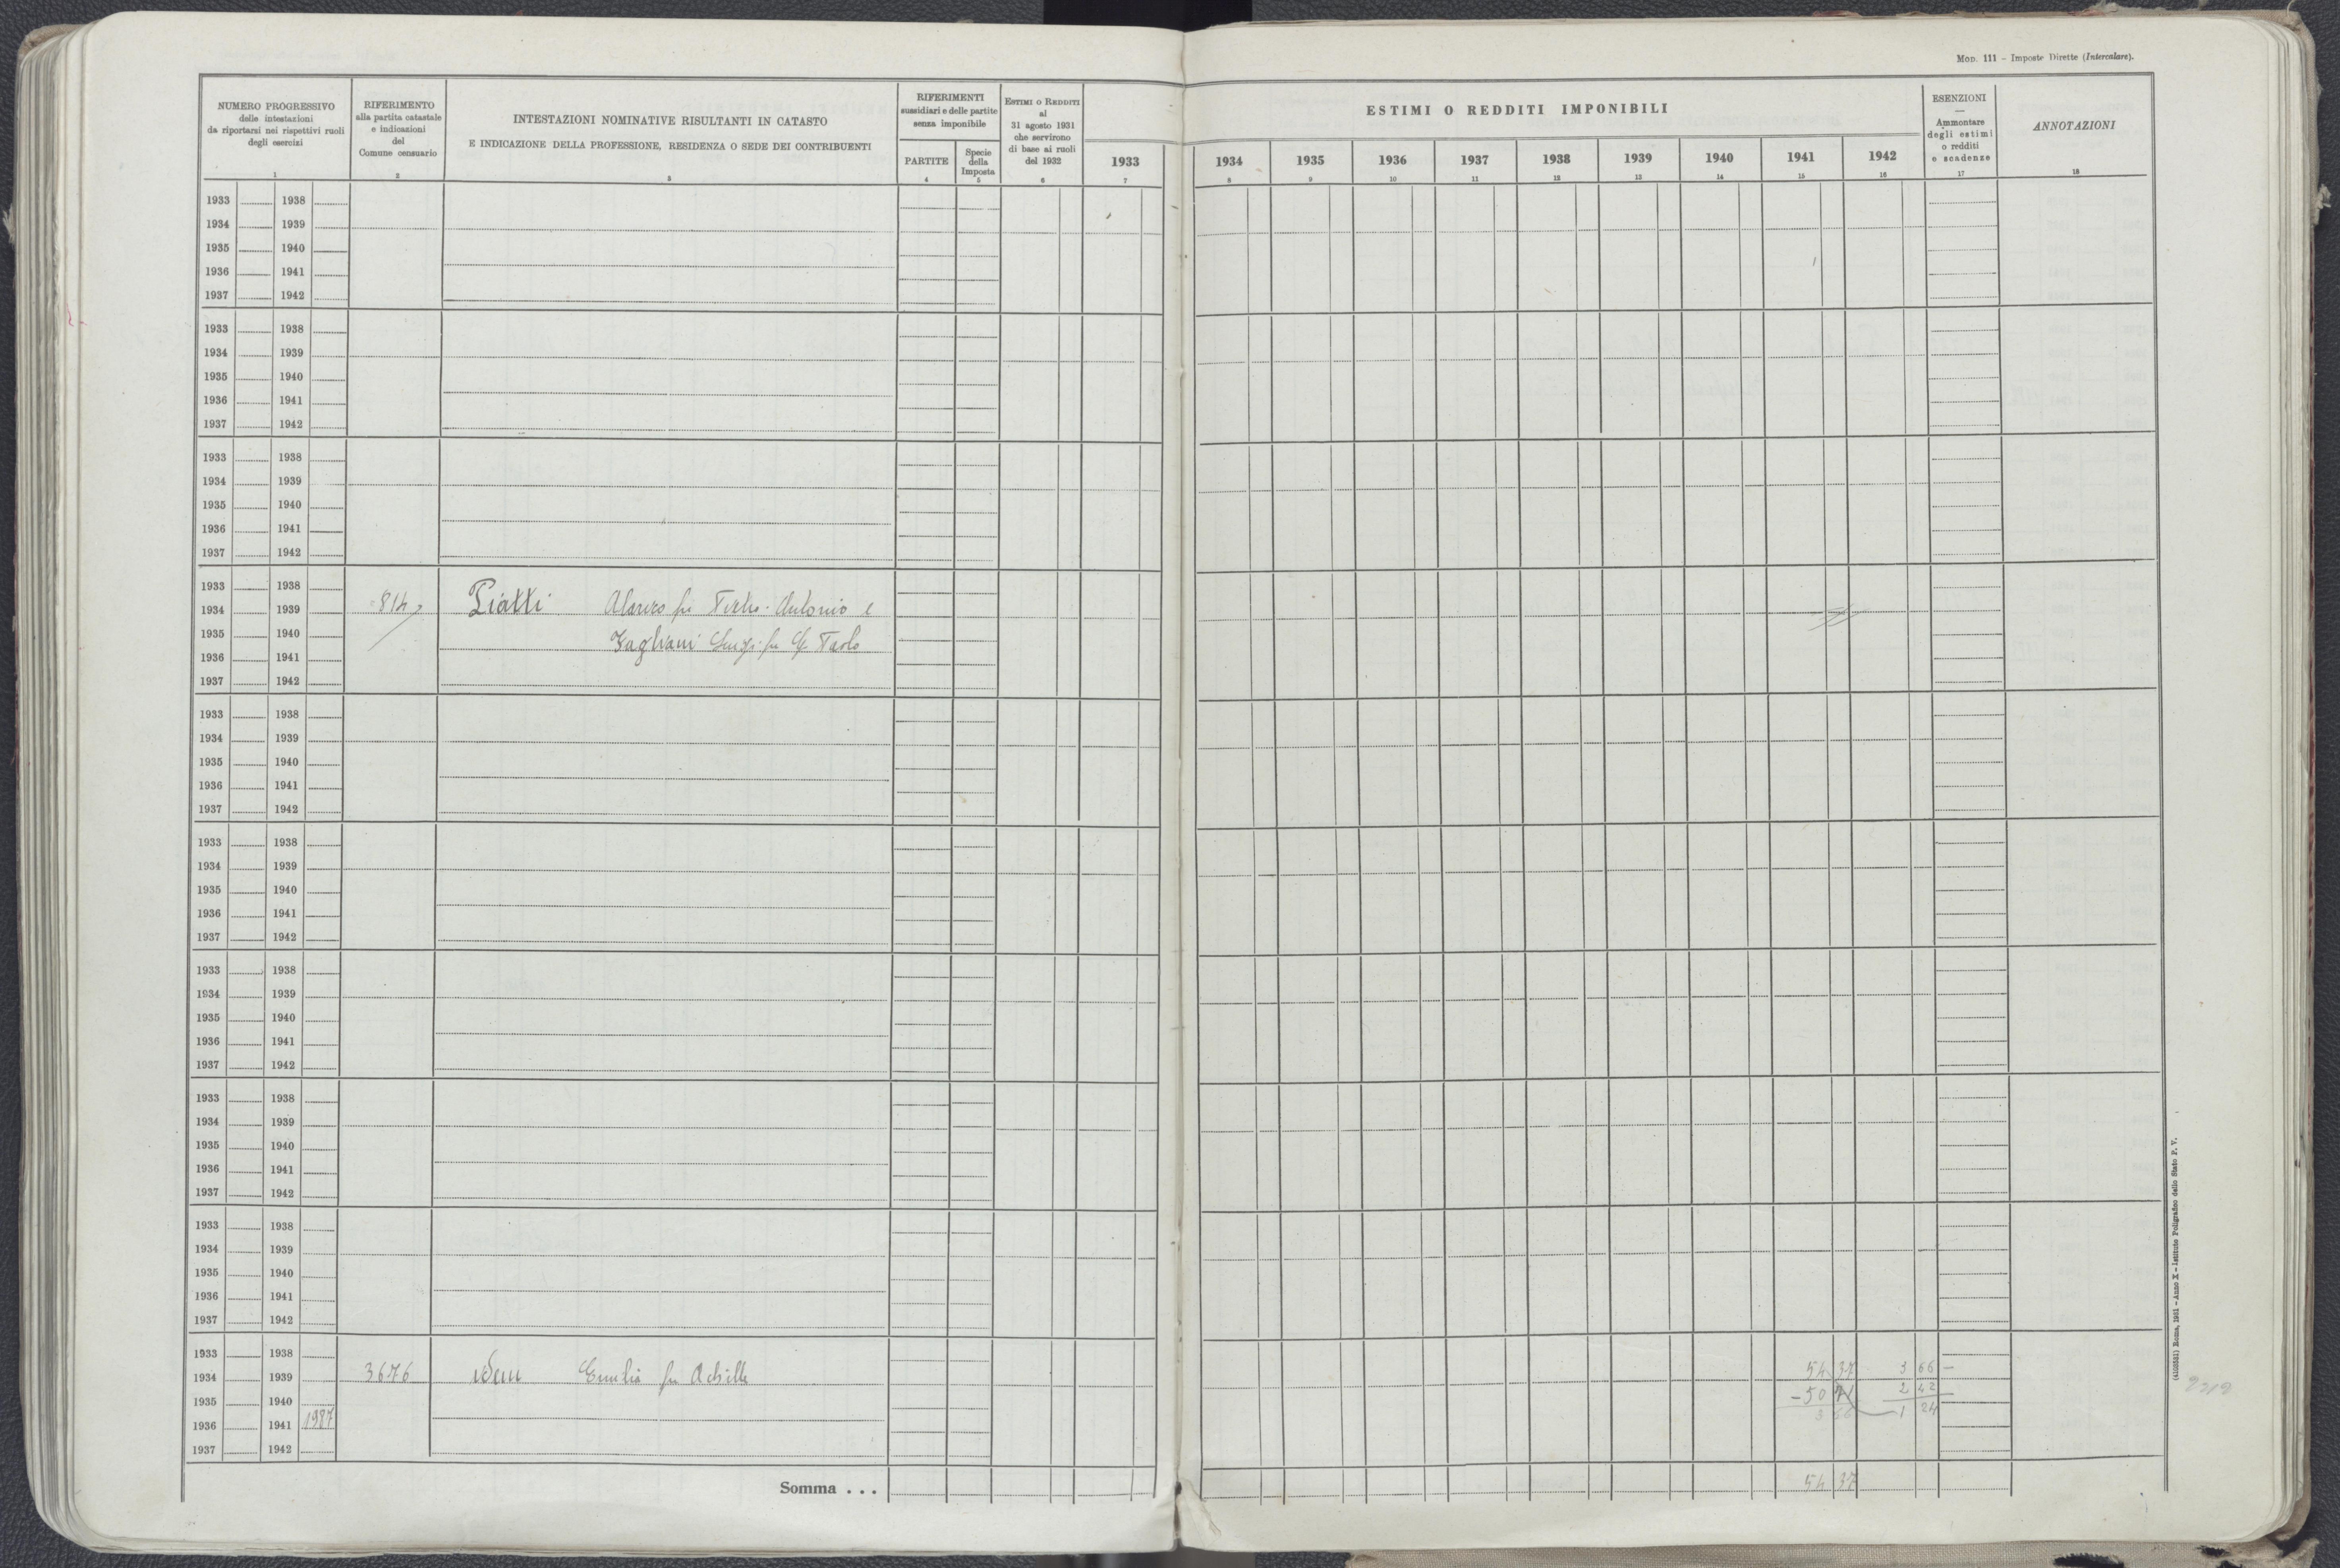 Mod. 111 – Imposte Dirette (Intercalare).
NUMERO PROGRESSIVO
delle intestazioni
da riportarsi nei rispettivi ruoli
degli esercizi
1
RIFERIMENTO
alla partita catastale
e indicazioni
del
Comune censuario
2
INTESTAZIONI NOMINATIVE RISULTANTI IN CATASTO
E INDICAZIONE DELLA PROFESSIONE, RESIDENZA O SEDE DEI CONTRIBUENTI
3
RIFERIMENTI
sussidiari e delle partite
senza imponibile
PARTITE
4
Specie
della
Imposta
5
Estimi o Redditi
al
31 agosto 1931
che servirono
di base ai ruoli
del 1932
6
ESTIMI O REDDITI IMPONIBILI
1933 1934 1935 1936 1937 1938 1939 1940 1941 1942
7 8 9 10 11 12 13 14 15 16
ESENZIONI
—
Ammontare
degli estimi
o redditi
e scadenze
17
ANNOTAZIONI
18
1933 1938
1934 1939
1935 1940
1936 1941
1937 1942
1933 1938
1934 1939
1935 1940
1936 1941
1937 1942
1933 1938
1934 1939
1935 1940
1936 1941
1937 1942
1933 1938
1934 1939 814 Piatti fu Antonio e
1935 1940 Tagliani Luigi fu Paolo
1936 1941
1937 1942
1933 1938
1934 1939
1935 1940
1936 1941
1937 1942
1933 1938
1934 1939
1935 1940
1936 1941
1937 1942
1933 1938
1934 1939
1935 1940
1936 1941
1937 1942
1933 1938
1934 1939
1935 1940
1936 1941
1937 1942
1933 1938
1934 1939
1935 1940
1936 1941
1937 1942
1933 1938
1934 1939 3676 idem Emilia fu Achille 54 37 3 66 –
1935 1940 – 50 71 2 42
1936 1941 1987 3 66 1 24
1937 1942
Somma . . . 54 37
(4103531) Roma, 1931 – Anno X – Istituto Poligrafico dello Stato P. V.